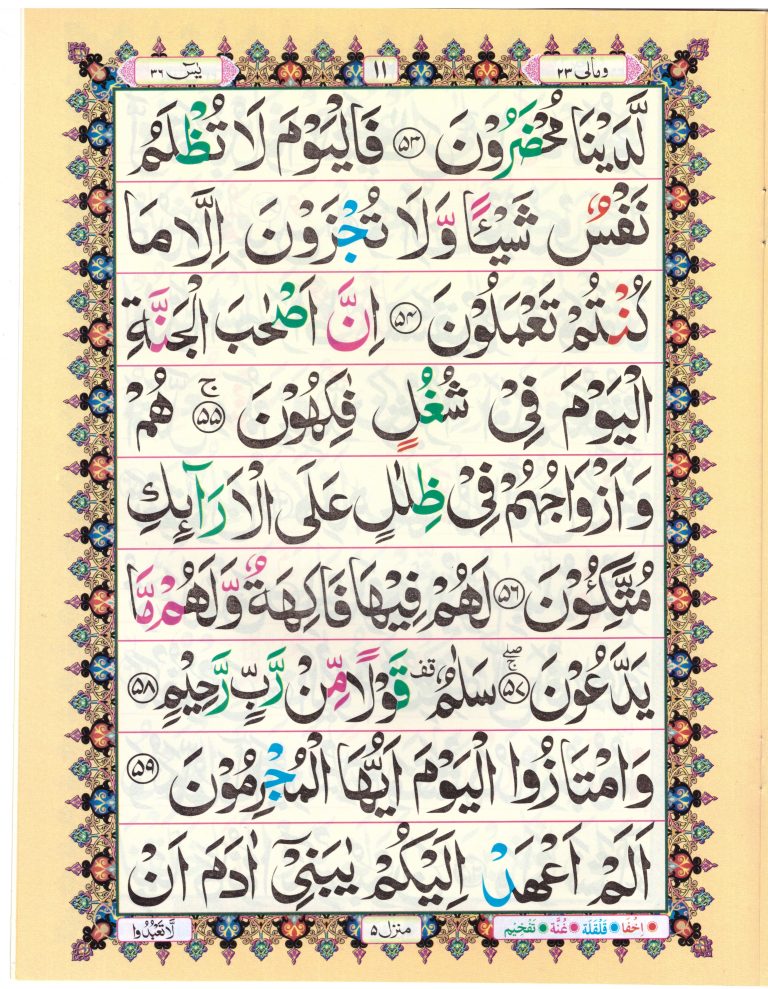 ومالی ۲۳ ۱۱ یٰسٓ ۳۶
لَّدَیْنَا مُحْضَرُوْنَ ۝۵۳ فَالْیَوْمَ لَا تُظْلَمُ
نَفْسٌ شَیْـًٔا وَّلَا تُجْزَوْنَ اِلَّا مَا
كُنْتُمْ تَعْمَلُوْنَ ۝۵۴ اِنَّ اَصْحٰبَ الْجَنَّةِ
الْیَوْمَ فِیْ شُغُلٍ فٰكِهُوْنَ ۝۵۵ۚ هُمْ
وَاَزْوَاجُهُمْ فِیْ ظِلٰلٍ عَلَی الْاَرَآئِكِ
مُتَّكِـُٔوْنَ ۝۵۶ لَهُمْ فِیْهَا فَاكِهَةٌ وَّلَهُمْ مَّا
یَدَّعُوْنَ ۝۵۷ۖۚ سَلٰمٌ قف قَوْلًا مِّنْ رَّبٍّ رَّحِیْمٍ ۝۵۸
وَامْتَازُوا الْیَوْمَ اَیُّهَا الْمُجْرِمُوْنَ ۝۵۹
اَلَمْ اَعْهَدْ اِلَیْكُمْ یٰبَنِیْۤ اٰدَمَ اَنْ
اِخْفَا قَلْقَلَة غُنَّة تَفْخِیْم منزل ۵ لَّا تَعْبُدُوا